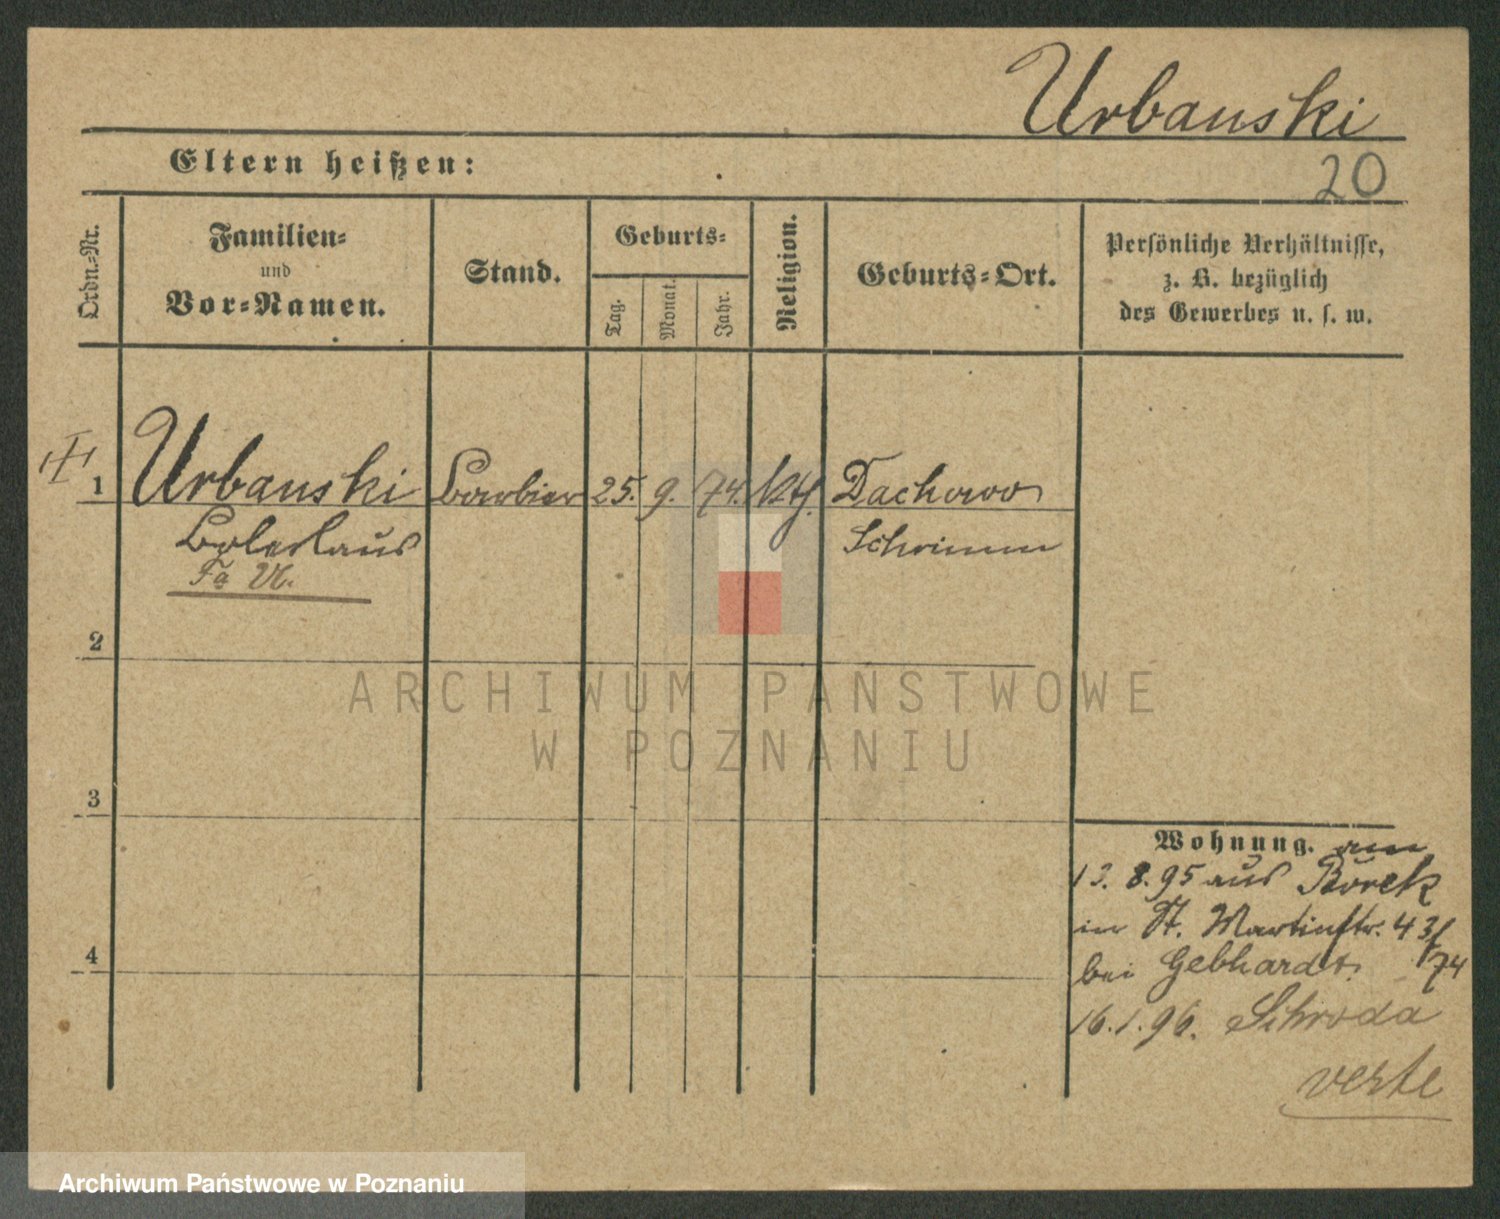 Urbanski
Eltern heißen:
20
Ordn.-Nr.
Familien-
und
Vor-Namen.
Stand.
Geburts-
Tag.
Monat.
Jahr.
Religion.
Geburts-Ort.
Persönliche Verhältnisse,
z. B. bezüglich
des Gewerbes u. s. w.
1 Urbanski Barbier 25. 9. 74. kth. Dachowo
Boleslaus Schrimm
2
3
4
Wohnung. am
13. 8. 95 aus Borek
in St. Martinstr. 43/
bei Gebhardt. 74
16. 1. 96. Schroda
verte
ARCHIWUM PAŃSTWOWE
W POZNANIU
Archiwum Państwowe w Poznaniu